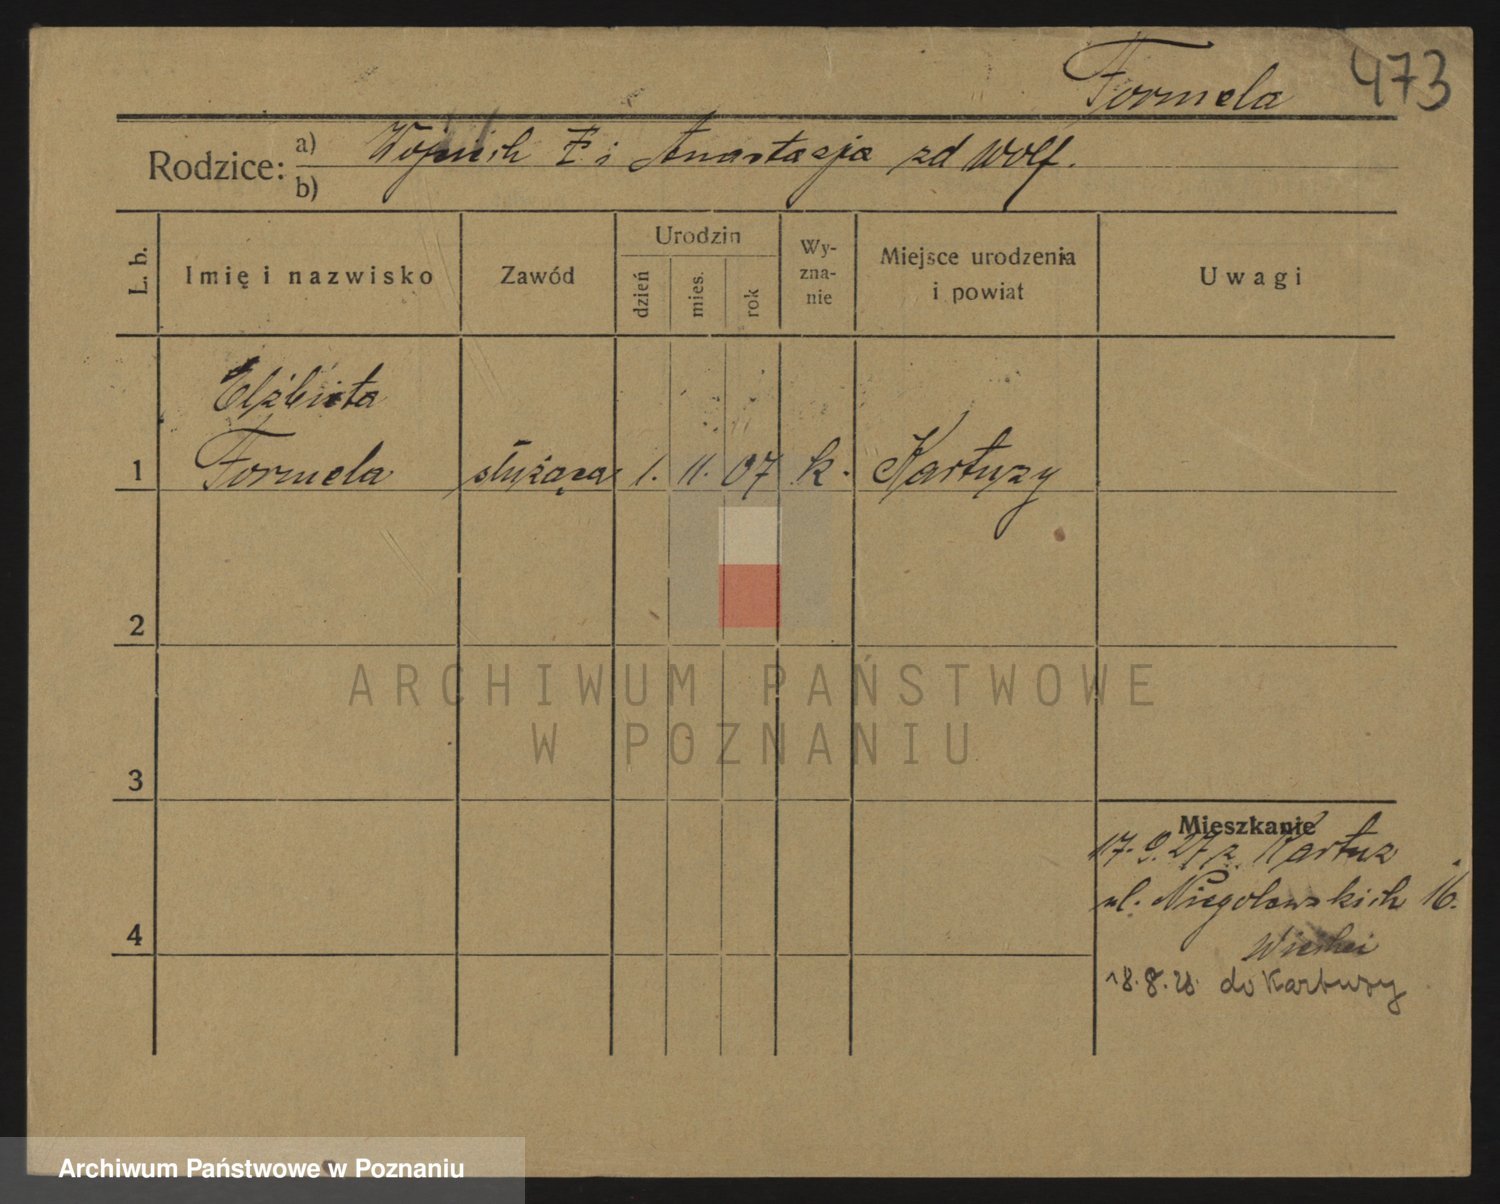 Formela 473
Rodzice: a) F i Anastazja zd Wolf.
b)
L. b.
Imię i nazwisko
Zawód
Urodzin
dzień
mies.
rok
Wy-
zna-
nie
Miejsce urodzenia
i powiat
Uwagi
Elżbieta
1 Formela służąca 1. 11. 07 k. Kartuzy
2
3
4
Mieszkanie
17. 9. 27 z Kartuz
ul. Niegolewskich 16.
18. 8. 28. do Kartuzy
ARCHIWUM PAŃSTWOWE
W POZNANIU
Archiwum Państwowe w Poznaniu